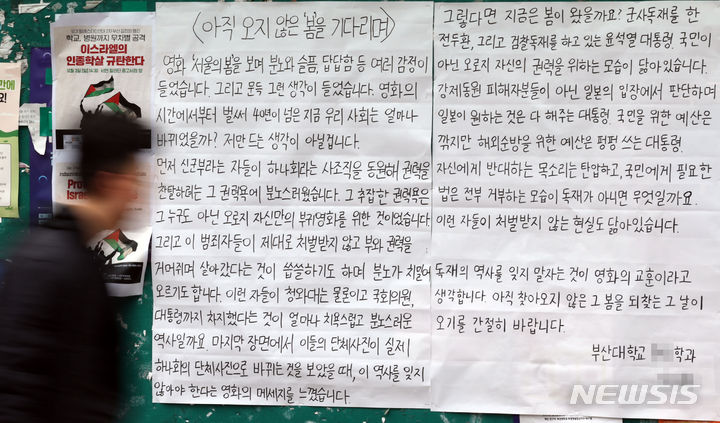 학교, 병원까지 무차별 공격
이스라엘의
인종학살 규탄한다
<아직 오지 않은 '봄'을 기다리며>
영화 '서울의 봄'을 보며 분노와 슬픔, 답답함 등 여러 감정이
들었습니다. 그리고 문득 그런 생각이 들었습니다. 영화의
시간에서부터 벌써 40년이 넘은 지금 우리 사회는 얼마나
바뀌었을까? 저만 드는 생각이 아닐겁니다.
먼저 신군부라는 자들이 하나회라는 사조직을 동원해 권력을
찬탈하려는 그 권력욕에 분노스러웠습니다. 그 추잡한 권력욕은
그 누구도 아닌 오로지 자신만의 부귀영화를 위한 것이었습니다
그리고 이 범죄자들이 제대로 처벌받지 않고 부와 권력을
거머쥐며 살아갔다는 것이 씁쓸하기도 하며 분노가 치밀어
오르기도 합니다. 이런 자들이 청와대는 물론이고 국회의원,
대통령까지 차지했다는 것이 얼마나 치욕스럽고 분노스러운
역사일까요. 마지막 장면에서 이들의 단체사진이 실제
하나회의 단체사진으로 바뀌는 것을 보았을 때, 이 역사를 잊지
않아야 한다는 영화의 메세지를 느꼈습니다.
그렇다면 지금은 봄이 왔을까요? 군사독재를 한
전두환, 그리고 검찰독재를 하고 있는 윤석열 대통령. 국민이
아닌 오로지 자신의 권력을 위하는 모습이 닮아있습니다.
강제동원 피해자분들이 아닌 일본의 입장에서 판단하며
일본이 원하는 것은 다 해주는 대통령. 국민을 위한 예산은
깎지만 해외순방을 위한 예산은 펑펑 쓰는 대통령.
자신에게 반대하는 목소리는 탄압하고, 국민에게 필요한
법은 전부 거부하는 모습이 독재가 아니면 무엇일까요.
이런 자들이 처벌받지 않는 현실도 닮아있습니다.
독재의 역사를 잊지 말자는 것이 영화의 교훈이라고
생각합니다. 아직 찾아오지 않은 그 봄을 되찾는 그 날이
오기를 간절히 바랍니다.
부산대학교 학과
NEWSIS